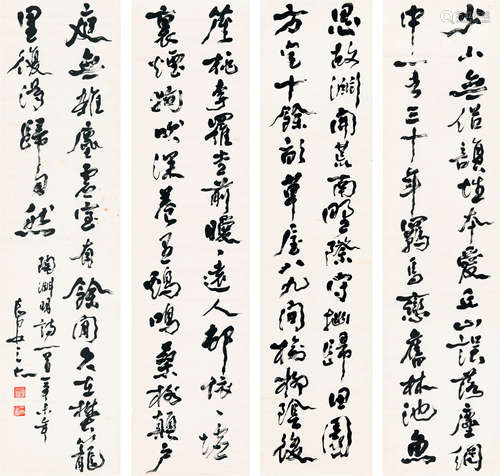 少小無俗韻性本愛丘山誤落塵網
中一去三十年羈鳥戀舊林池魚
思故淵開荒南野際守拙歸田園
方宅十餘畝草屋八九間榆柳陰後
簷桃李羅堂前曖々遠人村依々墟
裏煙狗吠深巷鷄鳴桑樹顛戶
庭無雜塵虛室有餘閒久在樊籠
里復得歸自然
陶淵明詩一首辛未年
長安